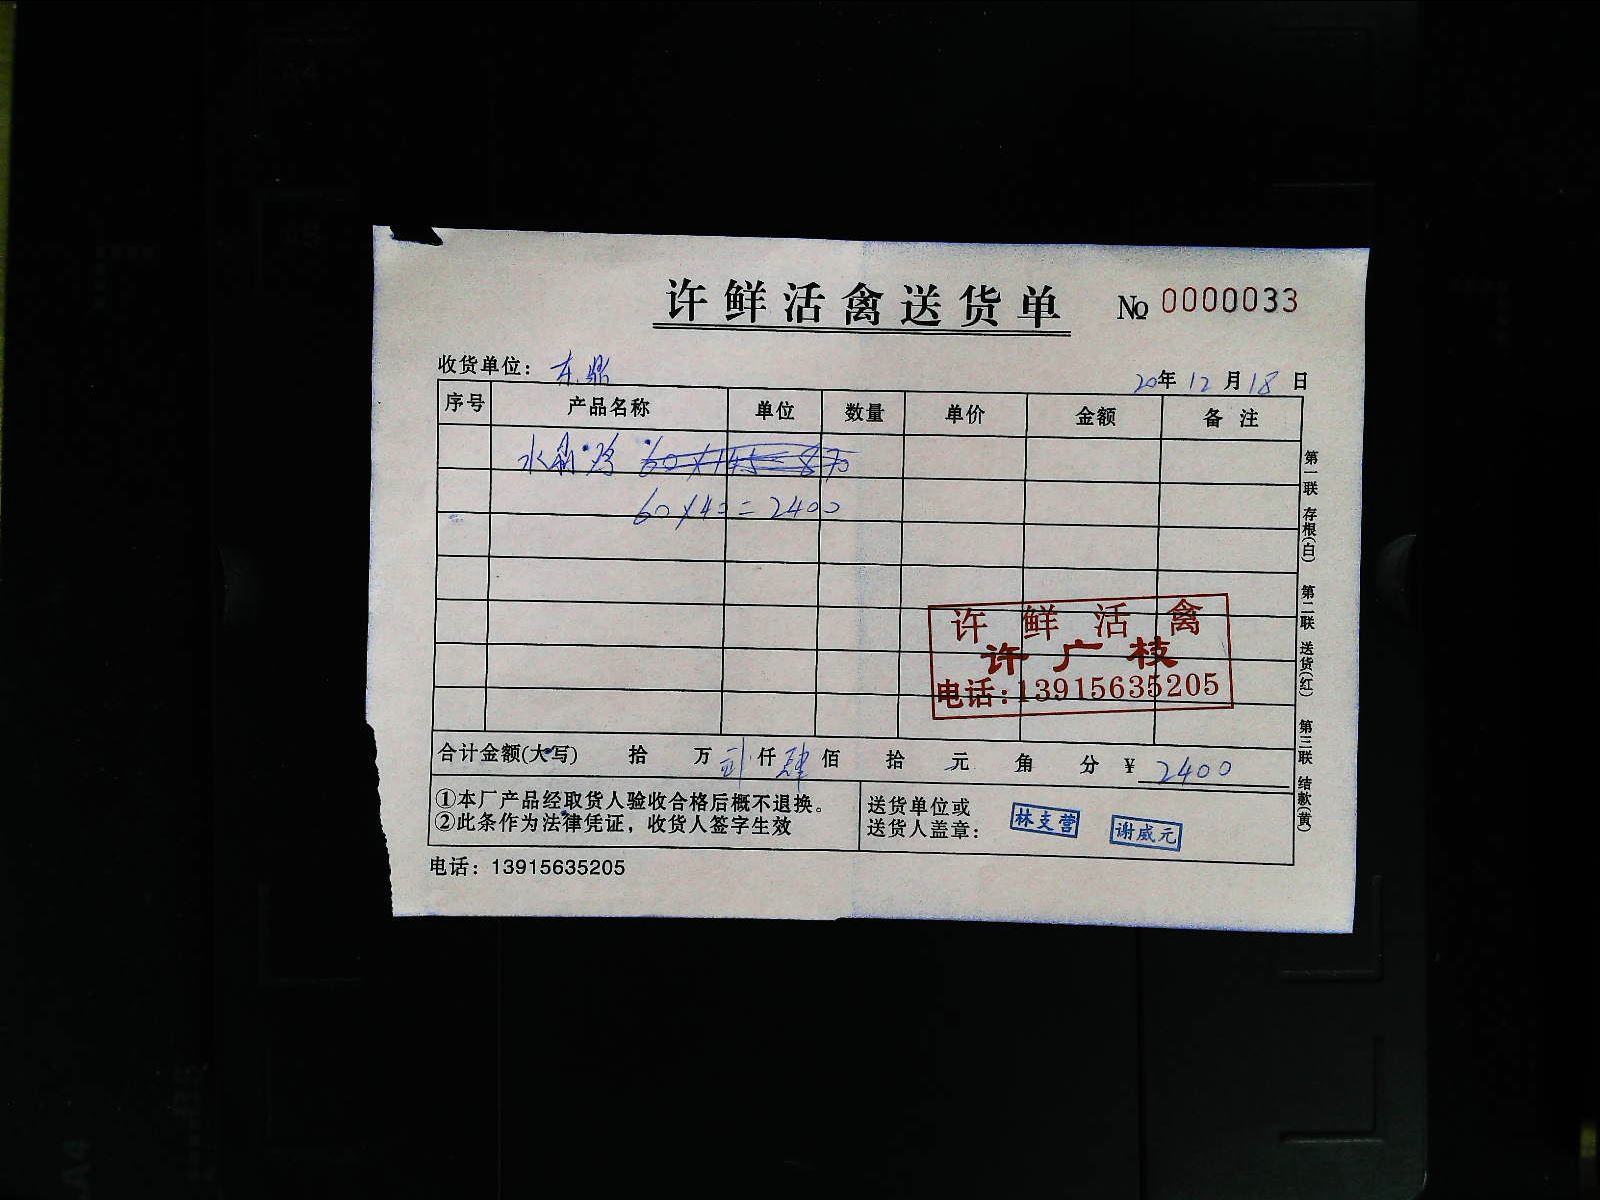 许鲜活禽送货单 № 0000033
收货单位: 东鼎 20年12月18日
序号 产品名称 单位 数量 单价 金额 备注
水 鸡 60×145=870
60×40=2400
许鲜活禽
许广枝
电话:13915635205
合计金额(大写) 拾 万 贰仟 肆佰 拾 元 角 分 ¥ 2400
①本厂产品经取货人验收合格后概不退换。
②此条作为法律凭证，收货人签字生效
送货单位或
送货人盖章: 林支营 谢威元
电话: 13915635205
第一联 存根(白) 第二联 送货(红) 第三联 结款(黄)